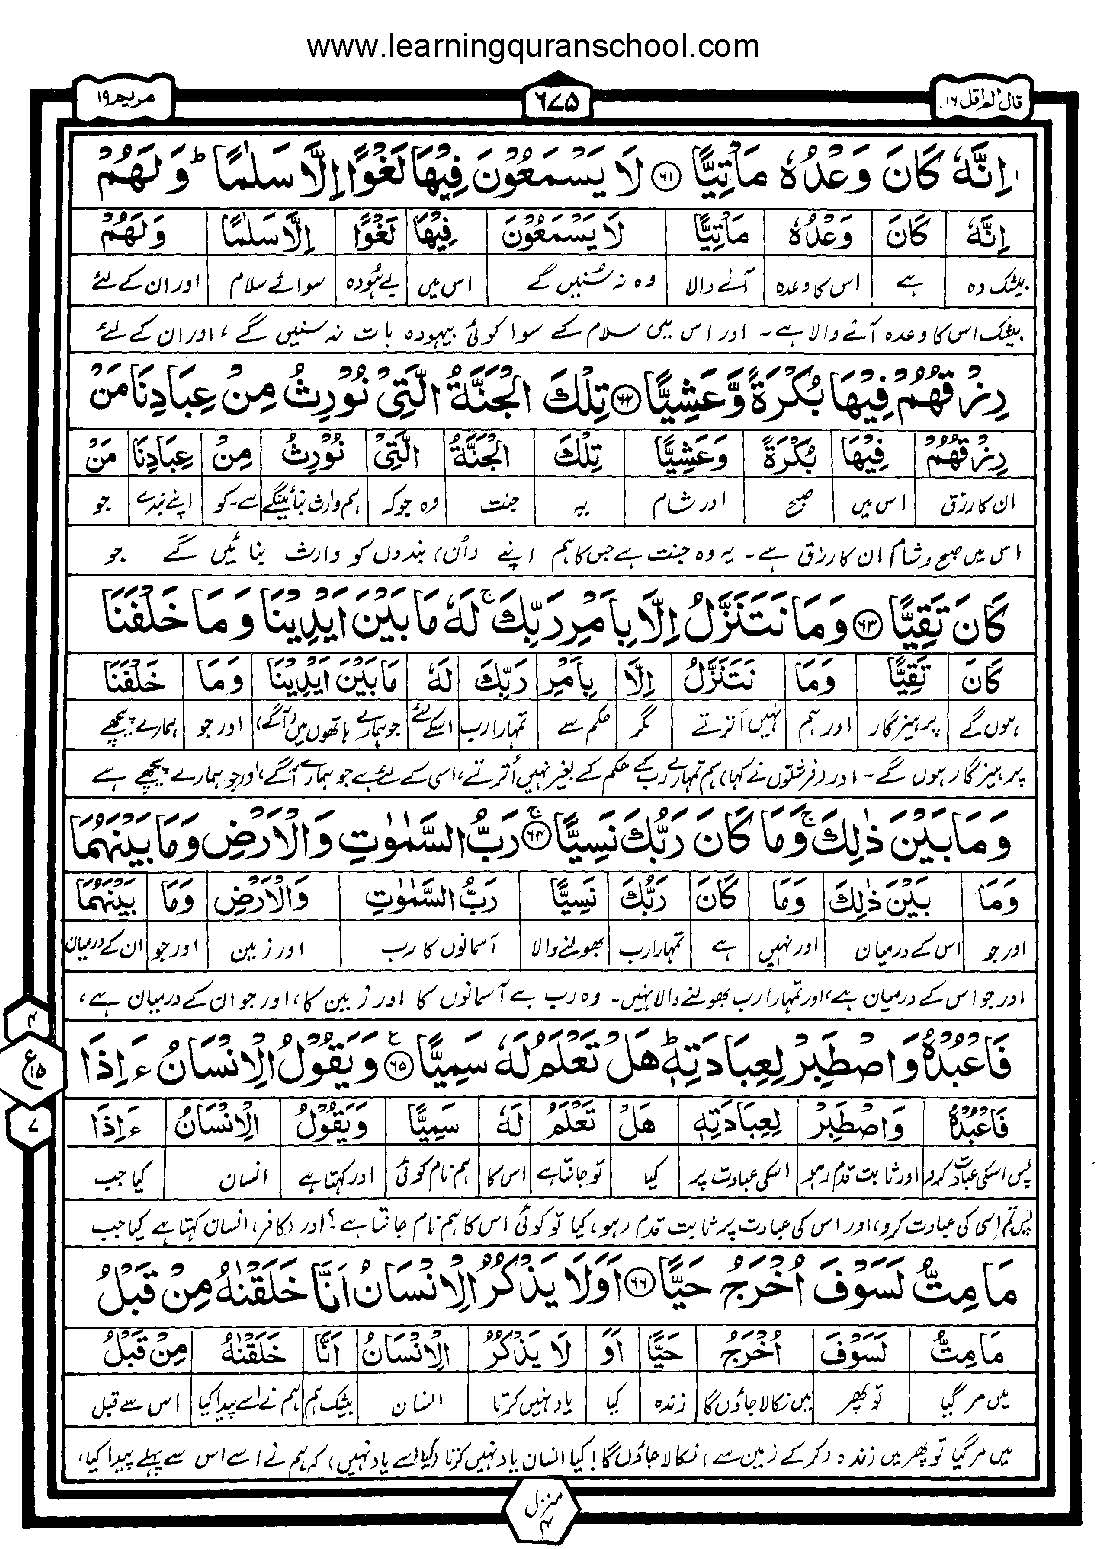 www.learningquranschool.com
قال الم اقل ١٦
٦٧٥
مریم ١٩
اِنَّهٗ كَانَ وَعْدُهٗ مَاْتِيًّا ﴿٦١﴾ لَا يَسْمَعُوْنَ فِيْهَا لَغْوًا اِلَّا سَلٰمًا ؕ وَلَهُمْ
اِنَّهٗ كَانَ وَعْدُهٗ مَاْتِيًّا لَا يَسْمَعُوْنَ فِيْهَا لَغْوًا اِلَّا سَلٰمًا وَلَهُمْ
بیشک وہ ہے اس کا وعدہ آنے والا وہ نہ سُنیں گے اس میں بے ہُودہ سوائے سلام اور ان کے لئے
بیشک اس کا وعدہ آنے والا ہے۔ اور اس میں سلام کے سوا کوئی بیہودہ بات نہ سنیں گے ، اور ان کے لئے
رِزْقُهُمْ فِيْهَا بُكْرَةً وَّعَشِيًّا ﴿٦٢﴾ تِلْكَ الْجَنَّةُ الَّتِيْ نُوْرِثُ مِنْ عِبَادِنَا مَنْ
رِزْقُهُمْ فِيْهَا بُكْرَةً وَّعَشِيًّا تِلْكَ الْجَنَّةُ الَّتِيْ نُوْرِثُ مِنْ عِبَادِنَا مَنْ
ان کا رزق اس میں صبح اور شام یہ جنت وہ جو کہ ہم وارث بنائینگے سے۔کو اپنے بندے جو
اس میں صبح و شام ان کا رزق ہے۔ یہ وہ جنت ہے جس کا ہم اپنے (اُن) بندوں کو وارث بنائیں گے جو
كَانَ تَقِيًّا ﴿٦٣﴾ وَمَا نَتَنَزَّلُ اِلَّا بِاَمْرِ رَبِّكَ ۚ لَهٗ مَا بَيْنَ اَيْدِيْنَا وَمَا خَلْفَنَا
كَانَ تَقِيًّا وَمَا نَتَنَزَّلُ اِلَّا بِاَمْرِ رَبِّكَ لَهٗ مَا بَيْنَ اَيْدِيْنَا وَمَا خَلْفَنَا
ہوں گے پرہیزگار اور ہم نہیں اُترتے مگر حکم سے تمہارا رب اسکے لئے جو ہمارے ہاتھوں میں (آگے) اور جو ہمارے پیچھے
پرہیزگار ہوں گے۔ اور (فرشتوں نے کہا) ہم تمہارے رب کے حکم کے بغیر نہیں اُترتے، اسی کے لئے ہے جو ہمارے آگے، اور جو ہمارے پیچھے ہے
وَمَا بَيْنَ ذٰلِكَ ۚ وَمَا كَانَ رَبُّكَ نَسِيًّا ﴿٦٤﴾ رَبُّ السَّمٰوٰتِ وَالْاَرْضِ وَمَا بَيْنَهُمَا
وَمَا بَيْنَ ذٰلِكَ وَمَا كَانَ رَبُّكَ نَسِيًّا رَبُّ السَّمٰوٰتِ وَالْاَرْضِ وَمَا بَيْنَهُمَا
اور جو اس کے درمیان اور نہیں ہے تمہارا رب بھولنے والا آسمانوں کا رب اور زمین اور جو ان کے درمیان
اور جو اس کے درمیان ہے، اور تمہارا رب بھولنے والا نہیں۔ وہ رب ہے آسمانوں کا اور زمین کا، اور جو ان کے درمیان ہے،
٤
ع ١٥
٧
فَاعْبُدْهُ وَاصْطَبِرْ لِعِبَادَتِهٖ ؕ هَلْ تَعْلَمُ لَهٗ سَمِيًّا ﴿٦٥﴾ ع وَيَقُوْلُ الْاِنْسَانُ ءَاِذَا
فَاعْبُدْهُ وَاصْطَبِرْ لِعِبَادَتِهٖ هَلْ تَعْلَمُ لَهٗ سَمِيًّا وَيَقُوْلُ الْاِنْسَانُ ءَاِذَا
پس اسکی عبادت کرو اور ثابت قدم رہو اسکی عبادت پر کیا تو جانتا ہے اس کا ہم نام کوئی اور کہتا ہے انسان کیا جب
پس تم اسی کی عبادت کرو، اور اس کی عبادت پر ثابت قدم رہو، کیا تو کوئی اس کا ہم نام جانتا ہے؟ اور (کافر) انسان کہتا ہے کیا جب
مَا مِتُّ لَسَوْفَ اُخْرَجُ حَيًّا ﴿٦٦﴾ اَوَلَا يَذْكُرُ الْاِنْسَانُ اَنَّا خَلَقْنٰهُ مِنْ قَبْلُ
مَا مِتُّ لَسَوْفَ اُخْرَجُ حَيًّا اَوَ لَا يَذْكُرُ الْاِنْسَانُ اَنَّا خَلَقْنٰهُ مِنْ قَبْلُ
میں مر گیا تو پھر میں نکالا جاؤں گا زندہ کیا یاد نہیں کرتا انسان بیشک ہم ہم نے اسے پیدا کیا اس سے قبل
میں مر گیا تو پھر میں زندہ (کر کے زمین سے) نکالا جاؤں گا! کیا انسان یاد نہیں کرتا (کیا اسے یاد نہیں) کہ ہم نے اسے اس سے پہلے پیدا کیا،
منزل ٤